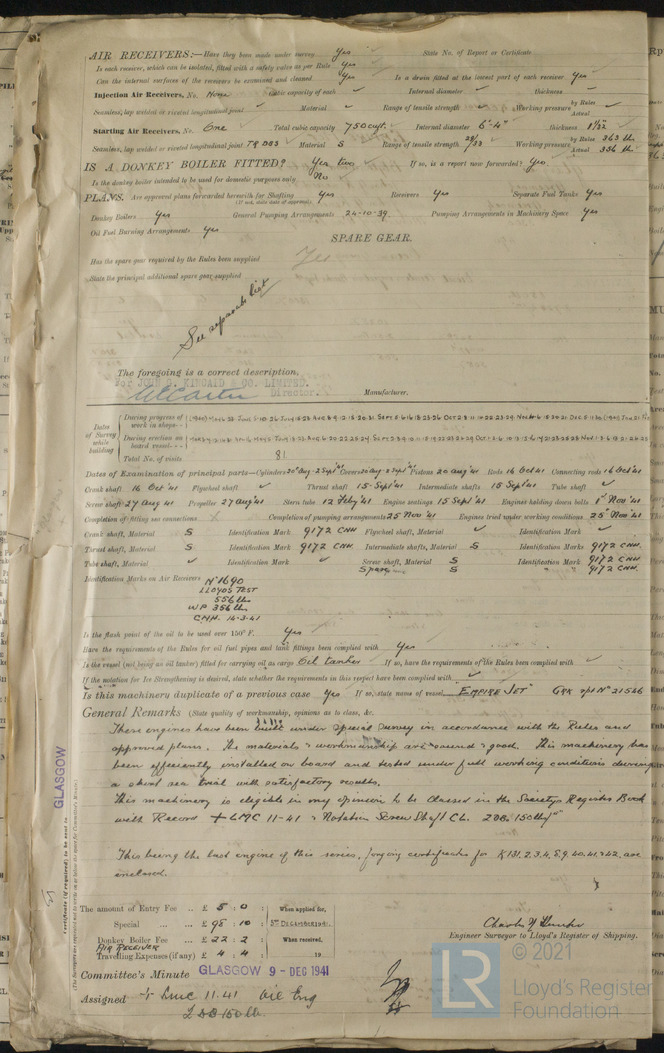 AIR RECEIVERS:—Have they been made under survey Yes State No. of Report or Certificate
Is each receiver, which can be isolated, fitted with a safety valve as per Rule Yes
Can the internal surfaces of the receivers be examined and cleaned Yes Is a drain fitted at the lowest part of each receiver Yes
Injection Air Receivers, No. None Cubic capacity of each ✓ Internal diameter ✓ thickness ✓
Seamless, lap welded or riveted longitudinal joint ✓ Material ✓ Range of tensile strength ✓ Working pressure by Rules Actual ✓
Starting Air Receivers, No. One Total cubic capacity 750 cuft. Internal diameter 6'-4" thickness 1 1/32
Seamless, lap welded or riveted longitudinal joint TR DBS Material S Range of tensile strength 29/33 Working pressure by Rules 363 lb. Actual 356 lb.
IS A DONKEY BOILER FITTED? Yes two If so, is a report now forwarded? Yes.
Is the donkey boiler intended to be used for domestic purposes only No
PLANS. Are approved plans forwarded herewith for Shafting Yes Receivers Yes Separate Fuel Tanks Yes
(If not, state date of approval)
Donkey Boilers Yes General Pumping Arrangements 24-10-39. Pumping Arrangements in Machinery Space Yes
Oil Fuel Burning Arrangements Yes
SPARE GEAR.
Has the spare gear required by the Rules been supplied Yes
State the principal additional spare gear supplied
See separate list
The foregoing is a correct description,
For JOHN G. KINCAID & CO. LIMITED.
Director. Manufacturer.
Dates of Survey while building
During progress of work in shops - -
During erection on board vessel - - -
Total No. of visits 81
Dates of Examination of principal parts—Cylinders 20 Aug - 2 Sept '41 Covers 20 Aug - 2 Sept '41 Pistons 20 Aug '41 Rods 16 Oct 41 Connecting rods 16 Oct '41
Crank shaft 16 Oct '41 Flywheel shaft ✓ Thrust shaft 15-Sept '41 Intermediate shafts 15 Sept '41 Tube shaft ✓
Screw shaft 27 Aug 41 Propeller 27 Aug '41 Stern tube 12 Feby '41 Engine seatings 15 Sept '41 Engines holding down bolts 1st Nov '41
Completion of fitting sea connections Completion of pumping arrangements 25 Nov '41 Engines tried under working conditions 25 Nov '41
Crank shaft, Material S Identification Mark 9172 CNH Flywheel shaft, Material ✓ Identification Mark ✓
Thrust shaft, Material S Identification Mark 9172 CNH. Intermediate shafts, Material S Identification Marks 9172 CNH.
Tube shaft, Material ✓ Identification Mark ✓ Screw shaft, Material S Identification Mark 9172 CNH
Spare " S " " 9172 CNH.
Identification Marks on Air Receivers No 1690
LLOYDS TEST
556 lb.
WP 356 lb.
CNH. 14-3-41
Is the flash point of the oil to be used over 150° F. Yes
Have the requirements of the Rules for oil fuel pipes and tank fittings been complied with Yes
Is the vessel (not being an oil tanker) fitted for carrying oil as cargo Oil tanker If so, have the requirements of the Rules been complied with ✓
If the notation for Ice Strengthening is desired, state whether the requirements in this respect have been complied with ✓
Is this machinery duplicate of a previous case Yes If so, state name of vessel "EMPIRE JET" GRK rpt No 21566
General Remarks (State quality of workmanship, opinions as to class, &c.
These engines have been built under special survey in accordance with the Rules and
approved plans. The materials & workmanship are sound & good. This machinery has
been efficiently installed on board and tested under full working conditions during
a short sea trial with satisfactory results.
This machinery is eligible in my opinion to be classed in the Society's Register Book
with Record + LMC 11-41 & Notation Screw Shaft CL. 2DB. 150 lb/□"
This being the last engine of this series, forging certificates for K131.2.3.4.5.9.40.41.&42. are
enclosed.
GLASGOW
Certificate (if required) to be sent to
The amount of Entry Fee .. £ 5 : 0 : When applied for,
Special .. £ 98 : 10 : 5th DECEMBER 1941.
Donkey Boiler Fee .. £ 22 : 2 : When received,
AIR RECEIVER
Travelling Expenses (if any) £ 4 : 4 : 19
Engineer Surveyor to Lloyd's Register of Shipping.
Committee's Minute GLASGOW 9 - DEC 1941
Assigned + LMC 11.41 Oil Eng
2 DB 150 lb.
LR
© 2021
Lloyd's Register
Foundation